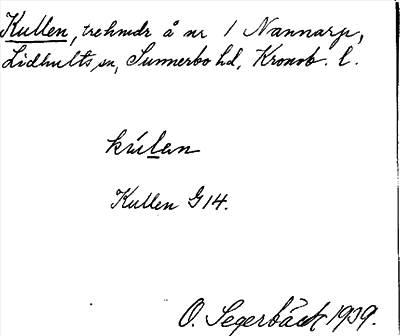 Kullen, trehmdr å nr 1 Nannarp,
Lidhults sn, Sunnerbo hd, Kronob. l.
kúlen
Kullen G14.
O. Segerbäck 1939.